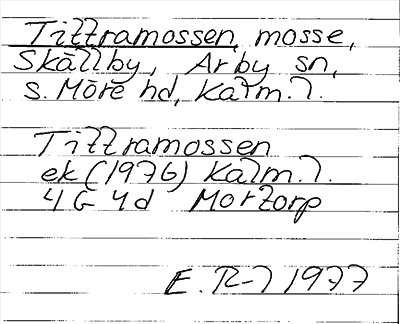 Tittramossen, mosse,
Skällby, Arby sn,
S. Möre hd, Kalm. l.
Tittramossen
ek (1976) Kalm. l.
4 G 4 d Mortorp
E. R-l 1977